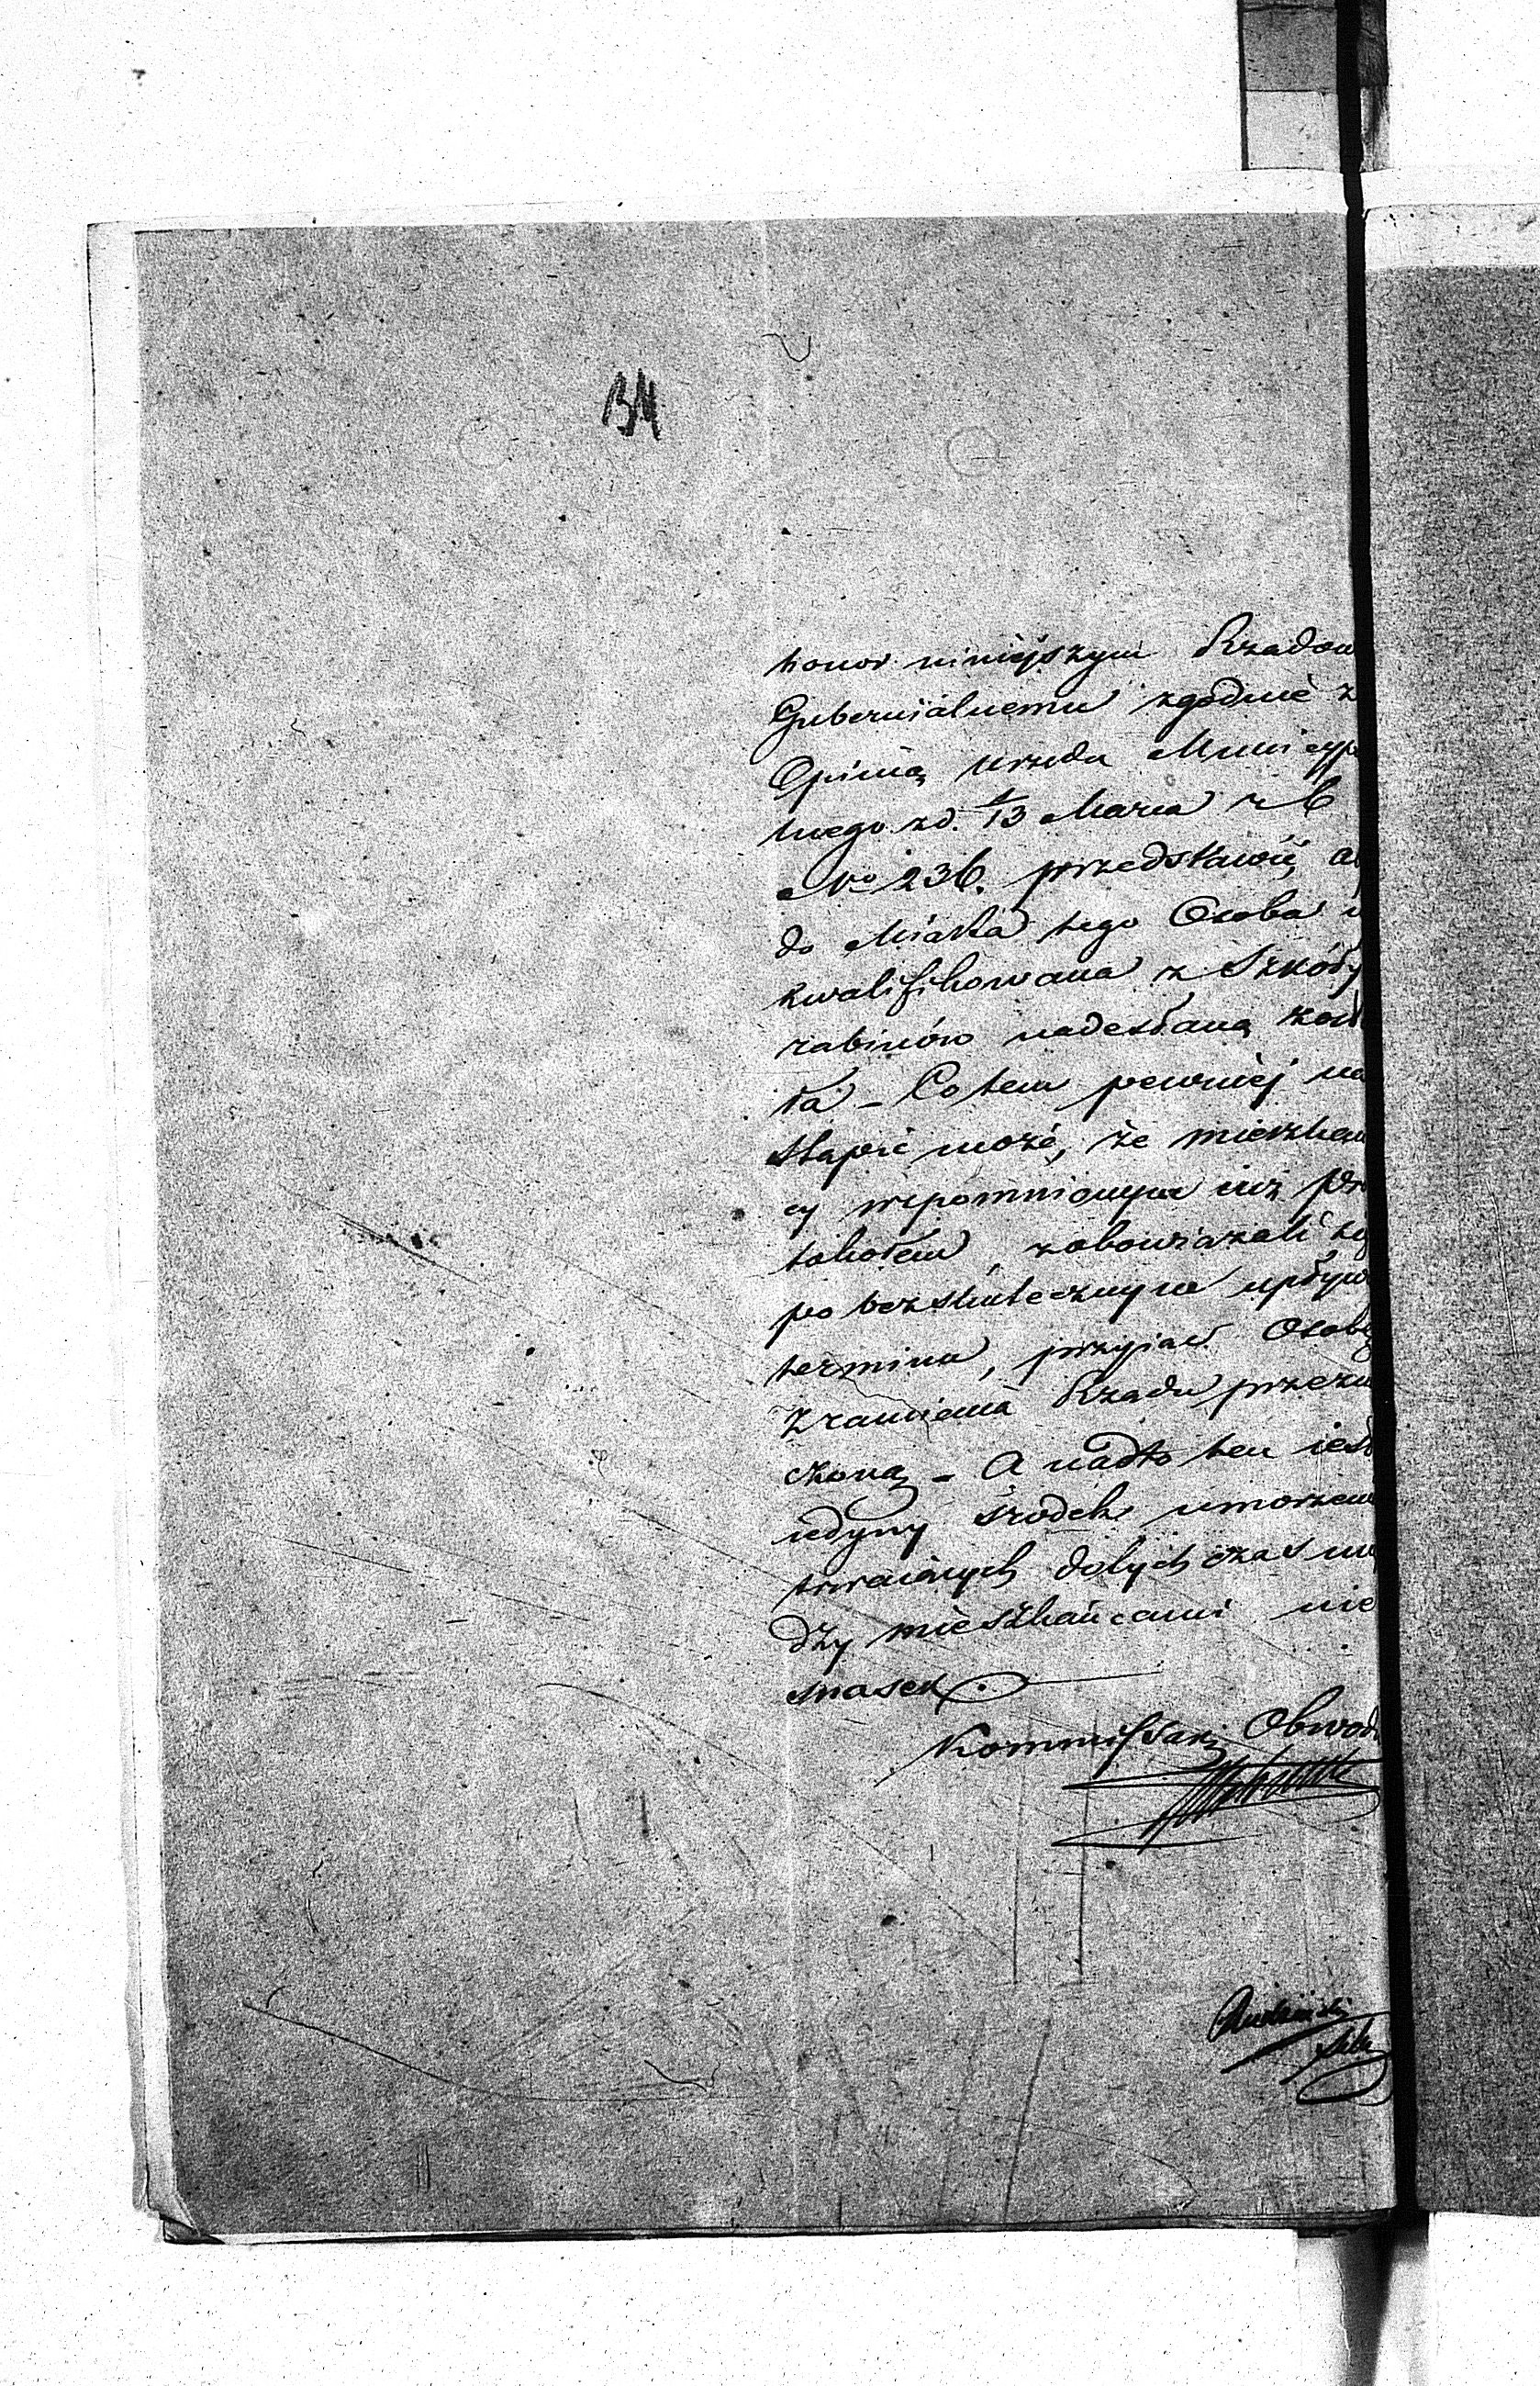 134
honor niniejszym Rządow
Gubernialnemu zgodnie z
Opinią Urzędu Municyp
nego z d. 1/13 Marca r b
No 236. przedstawić, a
do Miasta tego Osoba
kwalifikowana z Szkoły
rabinów nadesłaną zost
ła - Co tem pewniej na
stąpić może, że mieszkań
cy wspomnionym iuż Pro
tokołem zobowiązali się
po bezskutecznym upływ
terminu, przyjąć Osobę
z ramienia Rządu przezna
czoną - A nadto ten iest
iedyny środek umorzeni
trwaiących dotychczas mię
dzy mieszkańcami nie
snasek
Kommissarz Obwod